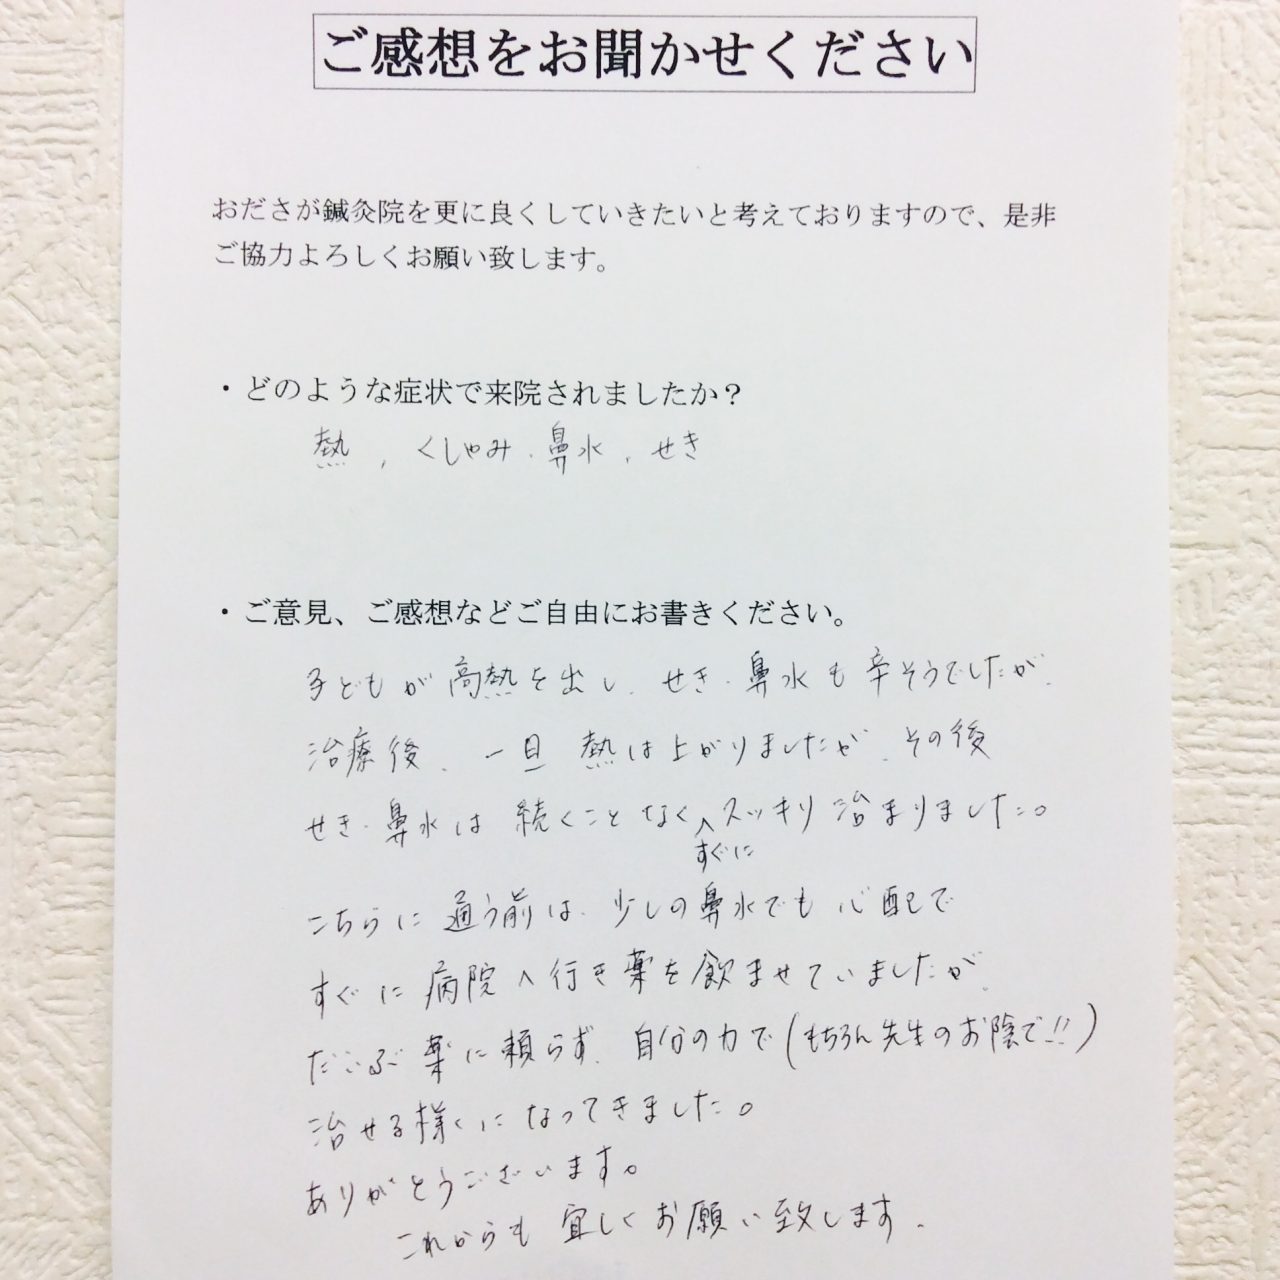 ご感想をお聞かせください
おださが鍼灸院を更に良くしていきたいと考えておりますので、是非
ご協力よろしくお願い致します。
・どのような症状で来院されましたか？
熱、くしゃみ、鼻水、せき
・ご意見、ご感想などご自由にお書きください。
子どもが高熱を出し、せき・鼻水も辛そうでしたが、
治療後、一旦熱は上がりましたが、その後
せき・鼻水は続くことなく、スッキリ治まりました。
すぐに
こちらに通う前は、少しの鼻水でも心配で
すぐに病院へ行き薬を飲ませていましたが、
だいぶ薬に頼らず、自分の力で(もちろん先生のお陰で!!)
治せる様にになってきました。
ありがとうございます。
これからも宜しくお願い致します。